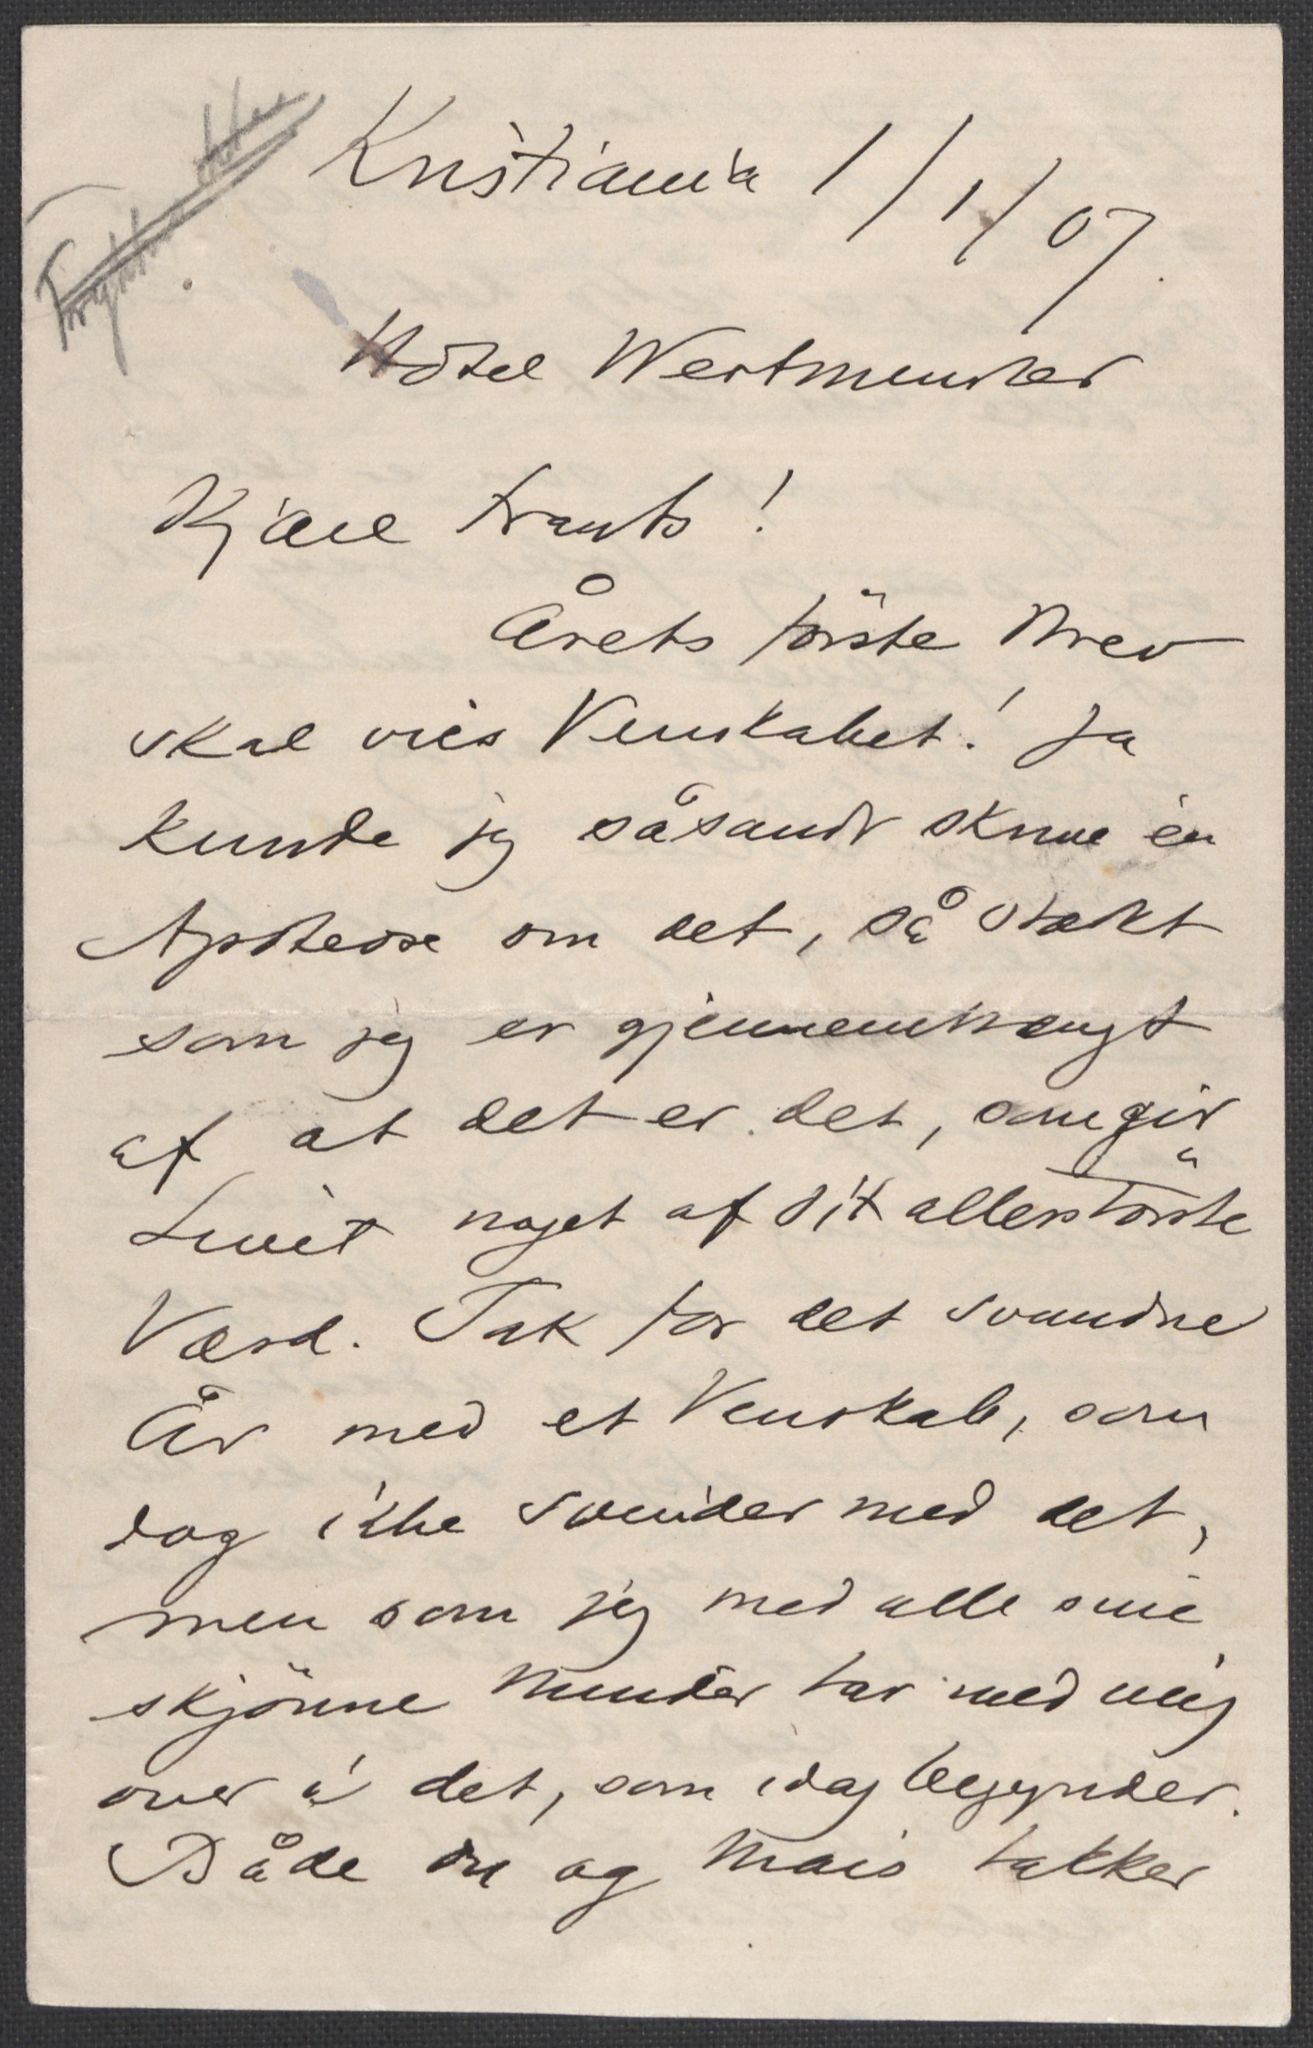 Kristiania 1/1/07.
Hôtel Westminster
Kjære Frants!
Årets förste Brev
skal vies Venskabet! Ja
kunde jeg såsandt skrive én
Apoteose om det, så stærkt
som jeg er gjennemtrængt
af at det er det, som gir
Livet noget af sit allerstörste
Værd. Tak for det svundne
År med et Venskab, som
dog ikke svinder med det,
men som jeg med alle sine
skjönne Minder tar med mig
over i det, som idag begynder.
Både du og Mais takker